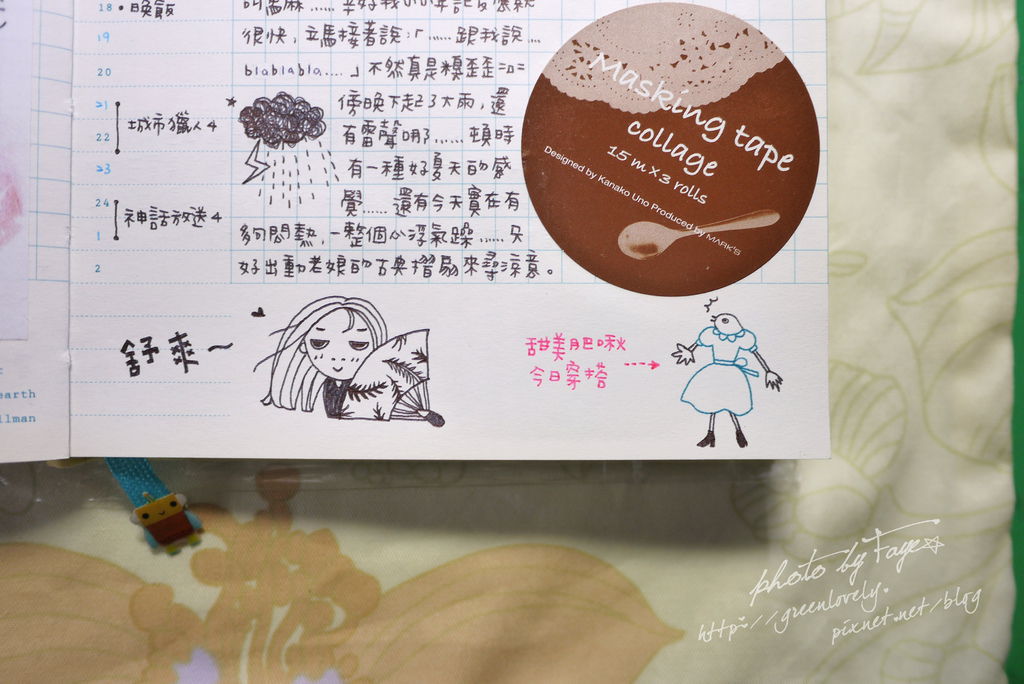 18 • 晚飯
19
20
21
22
23
24
1
2
城市獵人4
神話放送4
很快,立馬接著說:「......跟我說...
blablabla....」不然真是糗歪歪=口=
傍晚下起了大雨,還
有雷聲咧......頓時
有一種好夏天的感
覺......還有今天實在有
夠悶熱,一整個心浮氣躁......只
好出動老娘的古典摺扇來尋涼意。
舒爽~
甜美肥啾
今日穿搭
Masking tape
collage
15 m x 3 rolls
Designed by Kanako Uno Produced by MARK'S
earth
llman
photo by Faye
http://greenlovely.
pixnet.net/blog